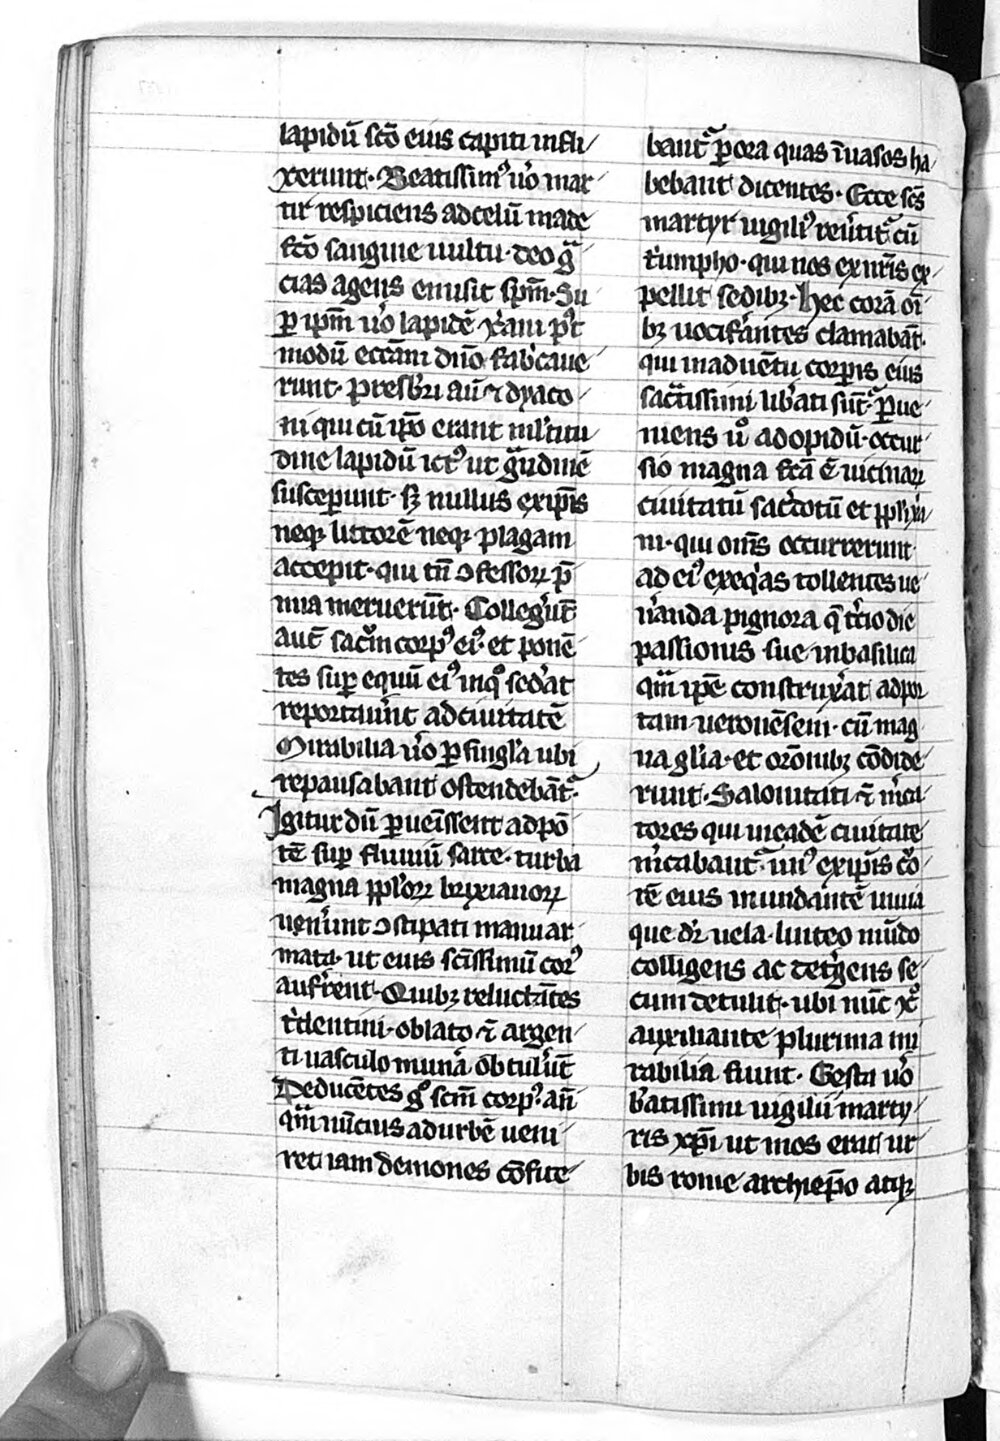 lapidū sc̄o eius capiti infli/
xerunt· Beatissimꝰ u̓o mar
tir respiciens ad celū made
fc̄o sanguine uultu· deo gͣ/
cias agens emisit sp̄m· Su
ꝑ ip̄m u̓o lapidē xp̓ani pꝰt
modū ecc̄am dn̄o fab̓caue/
runt· presb̓ri aū ⁊ dyaco/
ni qui cū ip̄o erant ml̓titu
dine lapidū ictꝰ ut gͣndinē
susceperunt· sꝫ nullus ex ip̄is
neqꝫ liuorē neqꝫ plagam
accepit· qui tn̄ ꝯfessoꝝ p̄
mia meruerūt· Colleg̓ut̄
aut̄ sac̓m corpꝰ eiꝰ· et ponē
tes suꝑ equū eiꝰ in qͦ sed̓at
reportau̓nt ad ciuitatē
Mirabilia u̓o ꝑ singl̓a ubi
repausabant ostendebāt᷑·
Igitur dū ꝑuen̄issent ad pō/
tē suꝑ fluuiū sarce· turba
magna pp̓loꝝ brixianoꝝ
uen̓unt ꝯstipati manu ar
mata· ut eius sc̄issimū corꝰ
aufr̓ent· Quibꝫ reluctātes
t̓dentini· oblato ⁊̄ argen/
ti uasculo mun̓a obtul̓ut̄
Deducētes gͦ sc̄m corpꝰ· an̄
qͣm nūcius ad urbē ueni/
ret iam demones cōfite/
bant᷑ ꝑ ora quas īuasos ha/
bebant dicentes· Ecce sc̄s
martyr uigiliꝰ reu̓tit᷑ cū
t̓umpho· qui nos ex nr̄is ex/
pellit sedibꝫ· Hec corā oī/
bꝫ uocif̓antes clamabāt·
qui in aduētu corporis eius
sac̓tissimi lib̓ati sūt᷑· ꝑue/
niens u̓o ad opidū· occur/
sio magna fc̄a ē uicinaꝝ
ciuitatū sac̓dotū et pp̓li xp̓ia/
ni· qui om̄s occurrerunt
ad eiꝰ exeq̓as tollentes ue/
n̓anda pignora q̄ t̓cio die
passionis sue in basilica
qͣm ip̄e construx̓at ad por
tam ueronēsem· cū mag
na gl̓ia· et orōnibꝫ cōdide/
runt· Salonitani ⁊̄ m̓ca/
tores qui in eadē ciuitate
m̓cabant᷑· unꝰ ex ip̄is c̓o/
rē eius inundantē uiuia
que dr̓ uela· linteo mūdo
colligens ac det̓gens se/
cum detulit· ubi nūc xp̄o
auxiliante plurima mi
rabilia fiunt· Gesta u̓o
b̓atissimi uigilii marty/
ris xp̄i ut mos erat ur/
bis rome archiep̄o atqꝫ